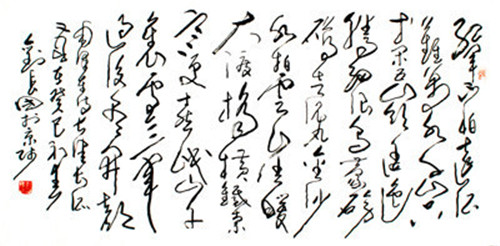 红军不怕远征
难万水千山只
等闲五岭逶迤
腾细浪乌蒙磅
礴走泥丸金沙
水拍云崖暖
大渡桥横铁索
寒更喜岷山千
里雪三军
过后尽开颜
毛泽东诗七律长征
岁在癸巳